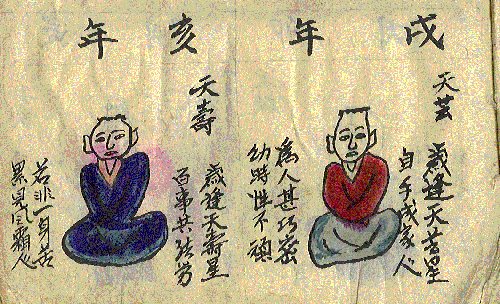 戌年
天芸
歲逢天芸星
自手成家人
為人甚巧密
幼時性不頑
亥年
天壽
歲逢天壽星
百事共
若非一身苦
累見風霜人